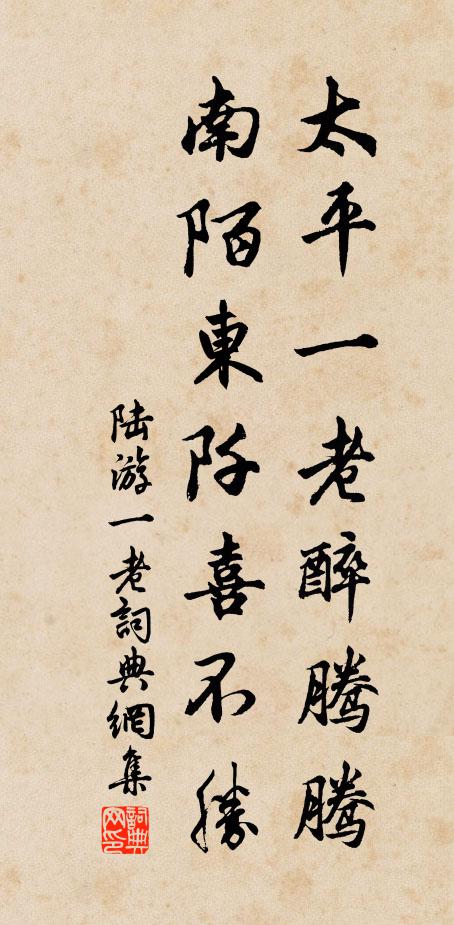 太平一老醉騰騰
南陌東阡喜不勝
陆游一老詞典網集
詞典網印